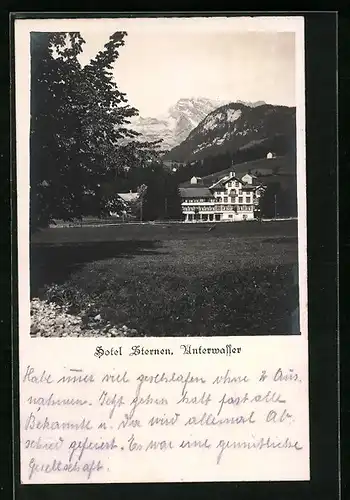 Hotel Sternen, Unterwasser
Habe immer viel geschlafen ohne
nahmen. Jetzt gehen halt fast alle
Bekannte u. da wird allemal Ab-
schied gefeiert. Es war eine gemütliche
Gesellschaft.